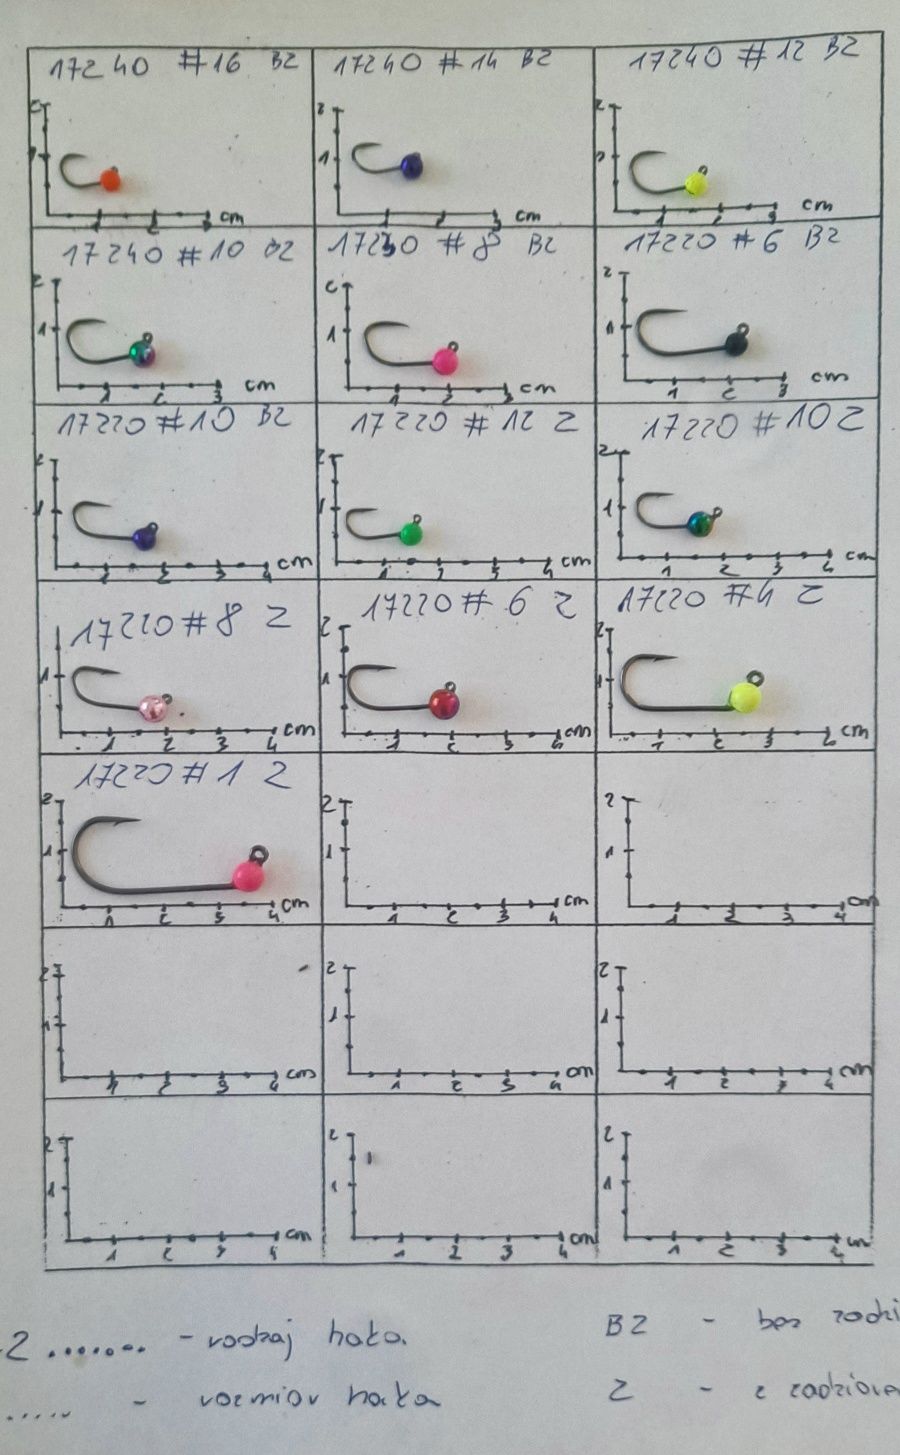 17240 #16 BZ
17240 #14 BZ
17240 #12 BZ
2 1
1 2 3 cm
2 1
1 2 3 cm
2 1
1 2 3 cm
17240 #10 BZ
17230 #8 BZ
17220 #6 BZ
2 1
1 2 3 cm
2 1
1 2 3 cm
2 1
1 2 3 cm
17220 #10 BZ
17220 #12 Z
17220 #10 Z
2 1
1 2 3 4 cm
2 1
1 2 3 4 cm
2 1
1 2 3 4 cm
17220 #8 Z
17220 #6 Z
17220 #4 Z
1
1 2 3 4 cm
2 1
1 2 3 4 cm
2 1
1 2 3 4 cm
17220 #1 Z
2 1
1 2 3 4 cm
2 1
1 2 3 4 cm
2 1
1 2 3 4 cm
2 1
1 2 3 4 cm
2 1
1 2 3 4 cm
2 1
1 2 3 4 cm
2 1
1 2 3 4 cm
2 1
1 2 3 4 cm
2 1
1 2 3 4 cm
2 ....... - rodzaj haka
..... - rozmiar haka
BZ - bez zadzi
Z - z zadziora